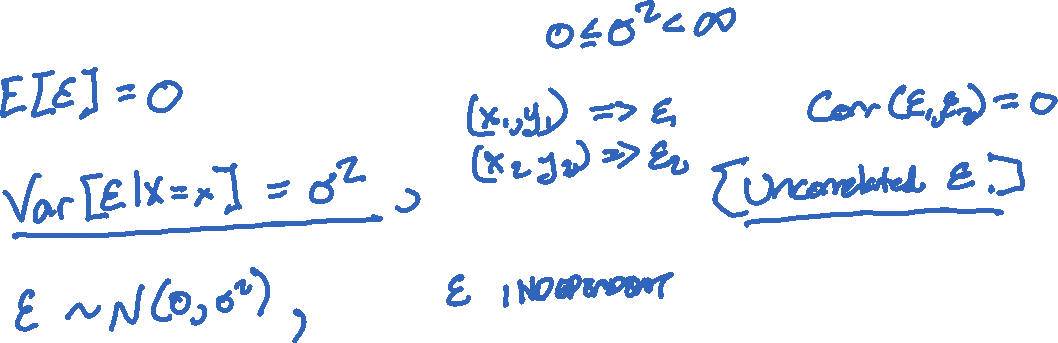 0 ≤ σ² < ∞
E[ε] = 0
(x₁,y₁) => ε₁
Corr(ε₁,ε₂) = 0
Var[ε|X=x] = σ²,
(x₂ y₂) => ε₂
[Uncorrelated ε.]
ε ~ N(0,σ²),
ε INDEPENDENT